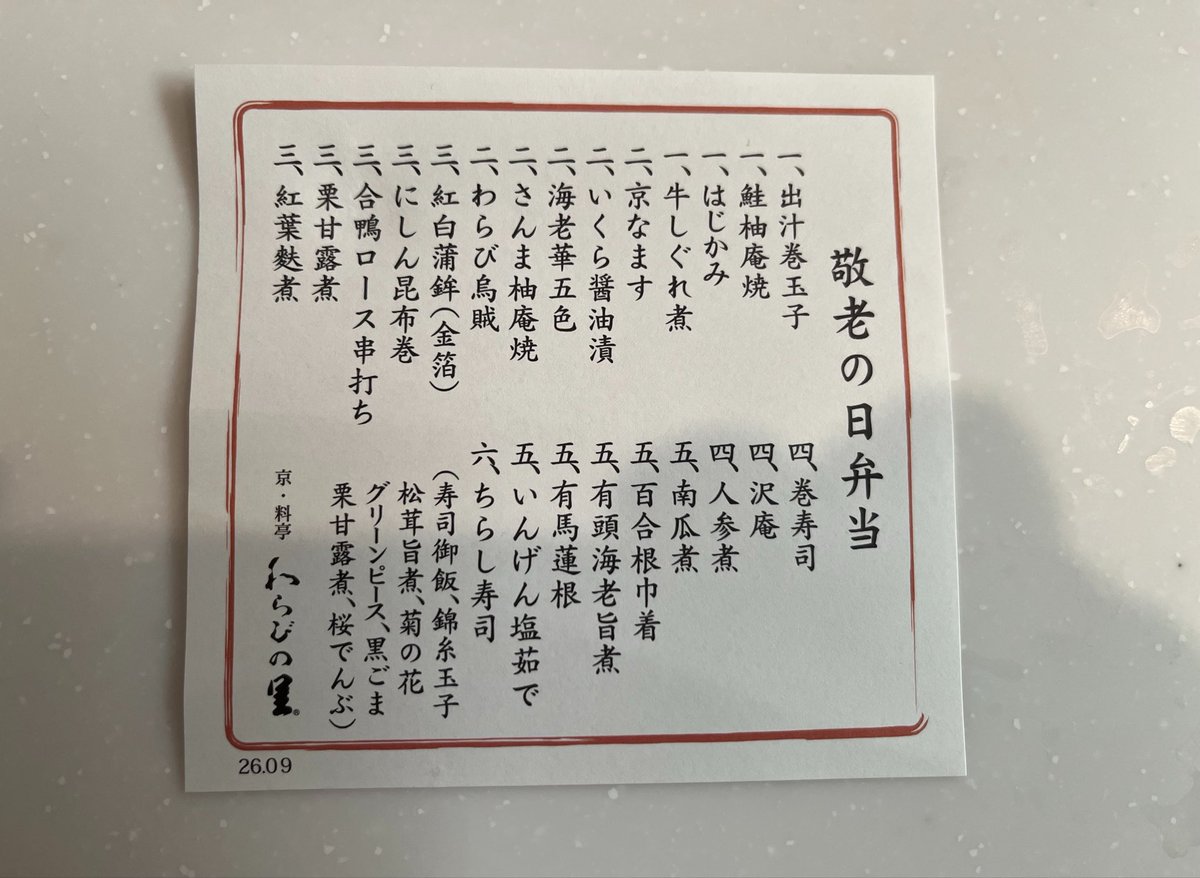 敬老の日弁当
一、出汁巻玉子
一、鮭柚庵焼
一、はじかみ
一、牛しぐれ煮
二、京なます
二、いくら醤油漬
二、海老華五色
二、さんま柚庵焼
二、わらび烏賊
三、紅白蒲鉾(金箔)
三、にしん昆布巻
三、合鴨ロース串打ち
三、栗甘露煮
三、紅葉麩煮
四、巻寿司
四、沢庵
四、人参煮
五、南瓜煮
五、百合根巾着
五、有頭海老旨煮
五、有馬蓮根
五、いんげん塩茹で
六、ちらし寿司
(寿司御飯、錦糸玉子
松茸旨煮、菊の花
グリーンピース、黒ごま
栗甘露煮、桜でんぶ)
京・料亭 わらびの里®
26.09